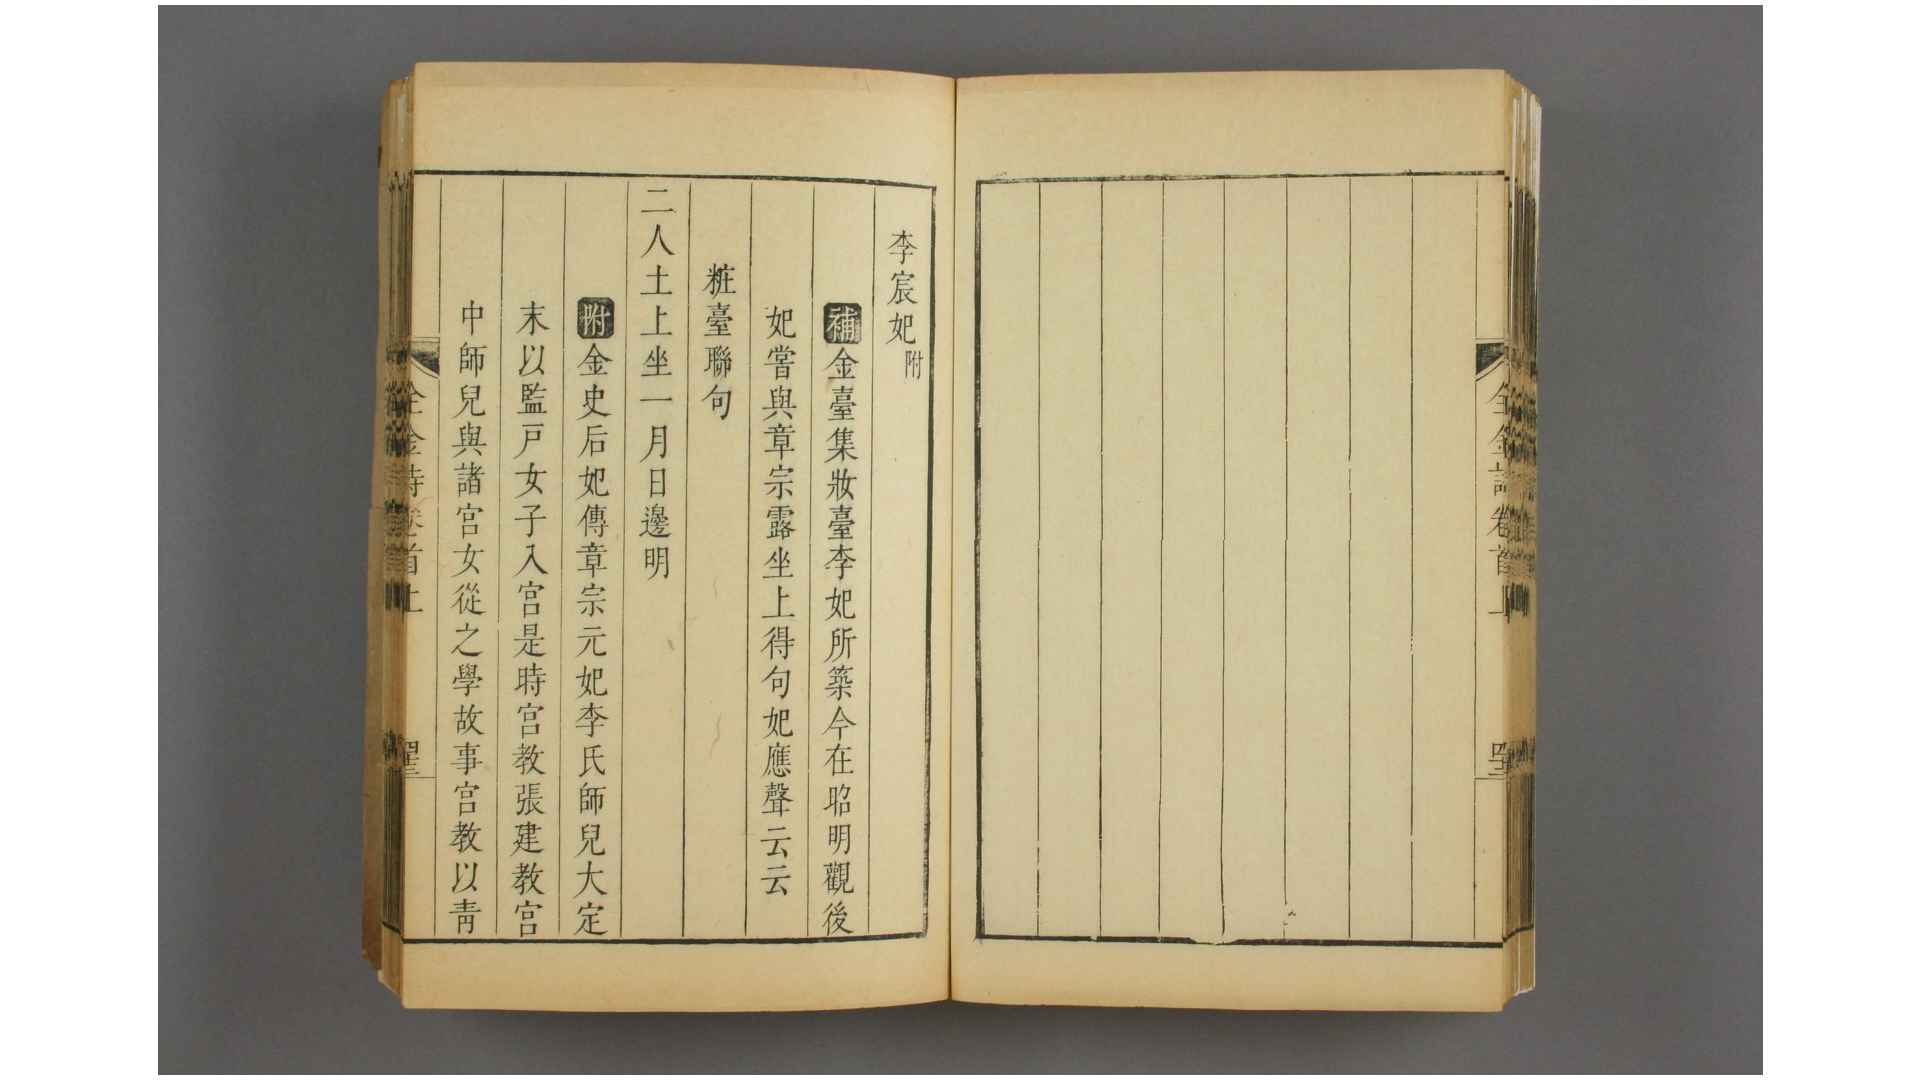 全金詩卷首上
李宸妃附
補金臺集妝臺李妃所築今在昭明觀後
妃嘗與章宗露坐上得句妃應聲云云
粧臺聯句
二人土上坐一月日邊明
附金史后妃傳章宗元妃李氏師兒大定
末以監戸女子入宮是時宮教張建教宮
中師兒與諸宮女從之學故事宮教以青
全金詩卷首上